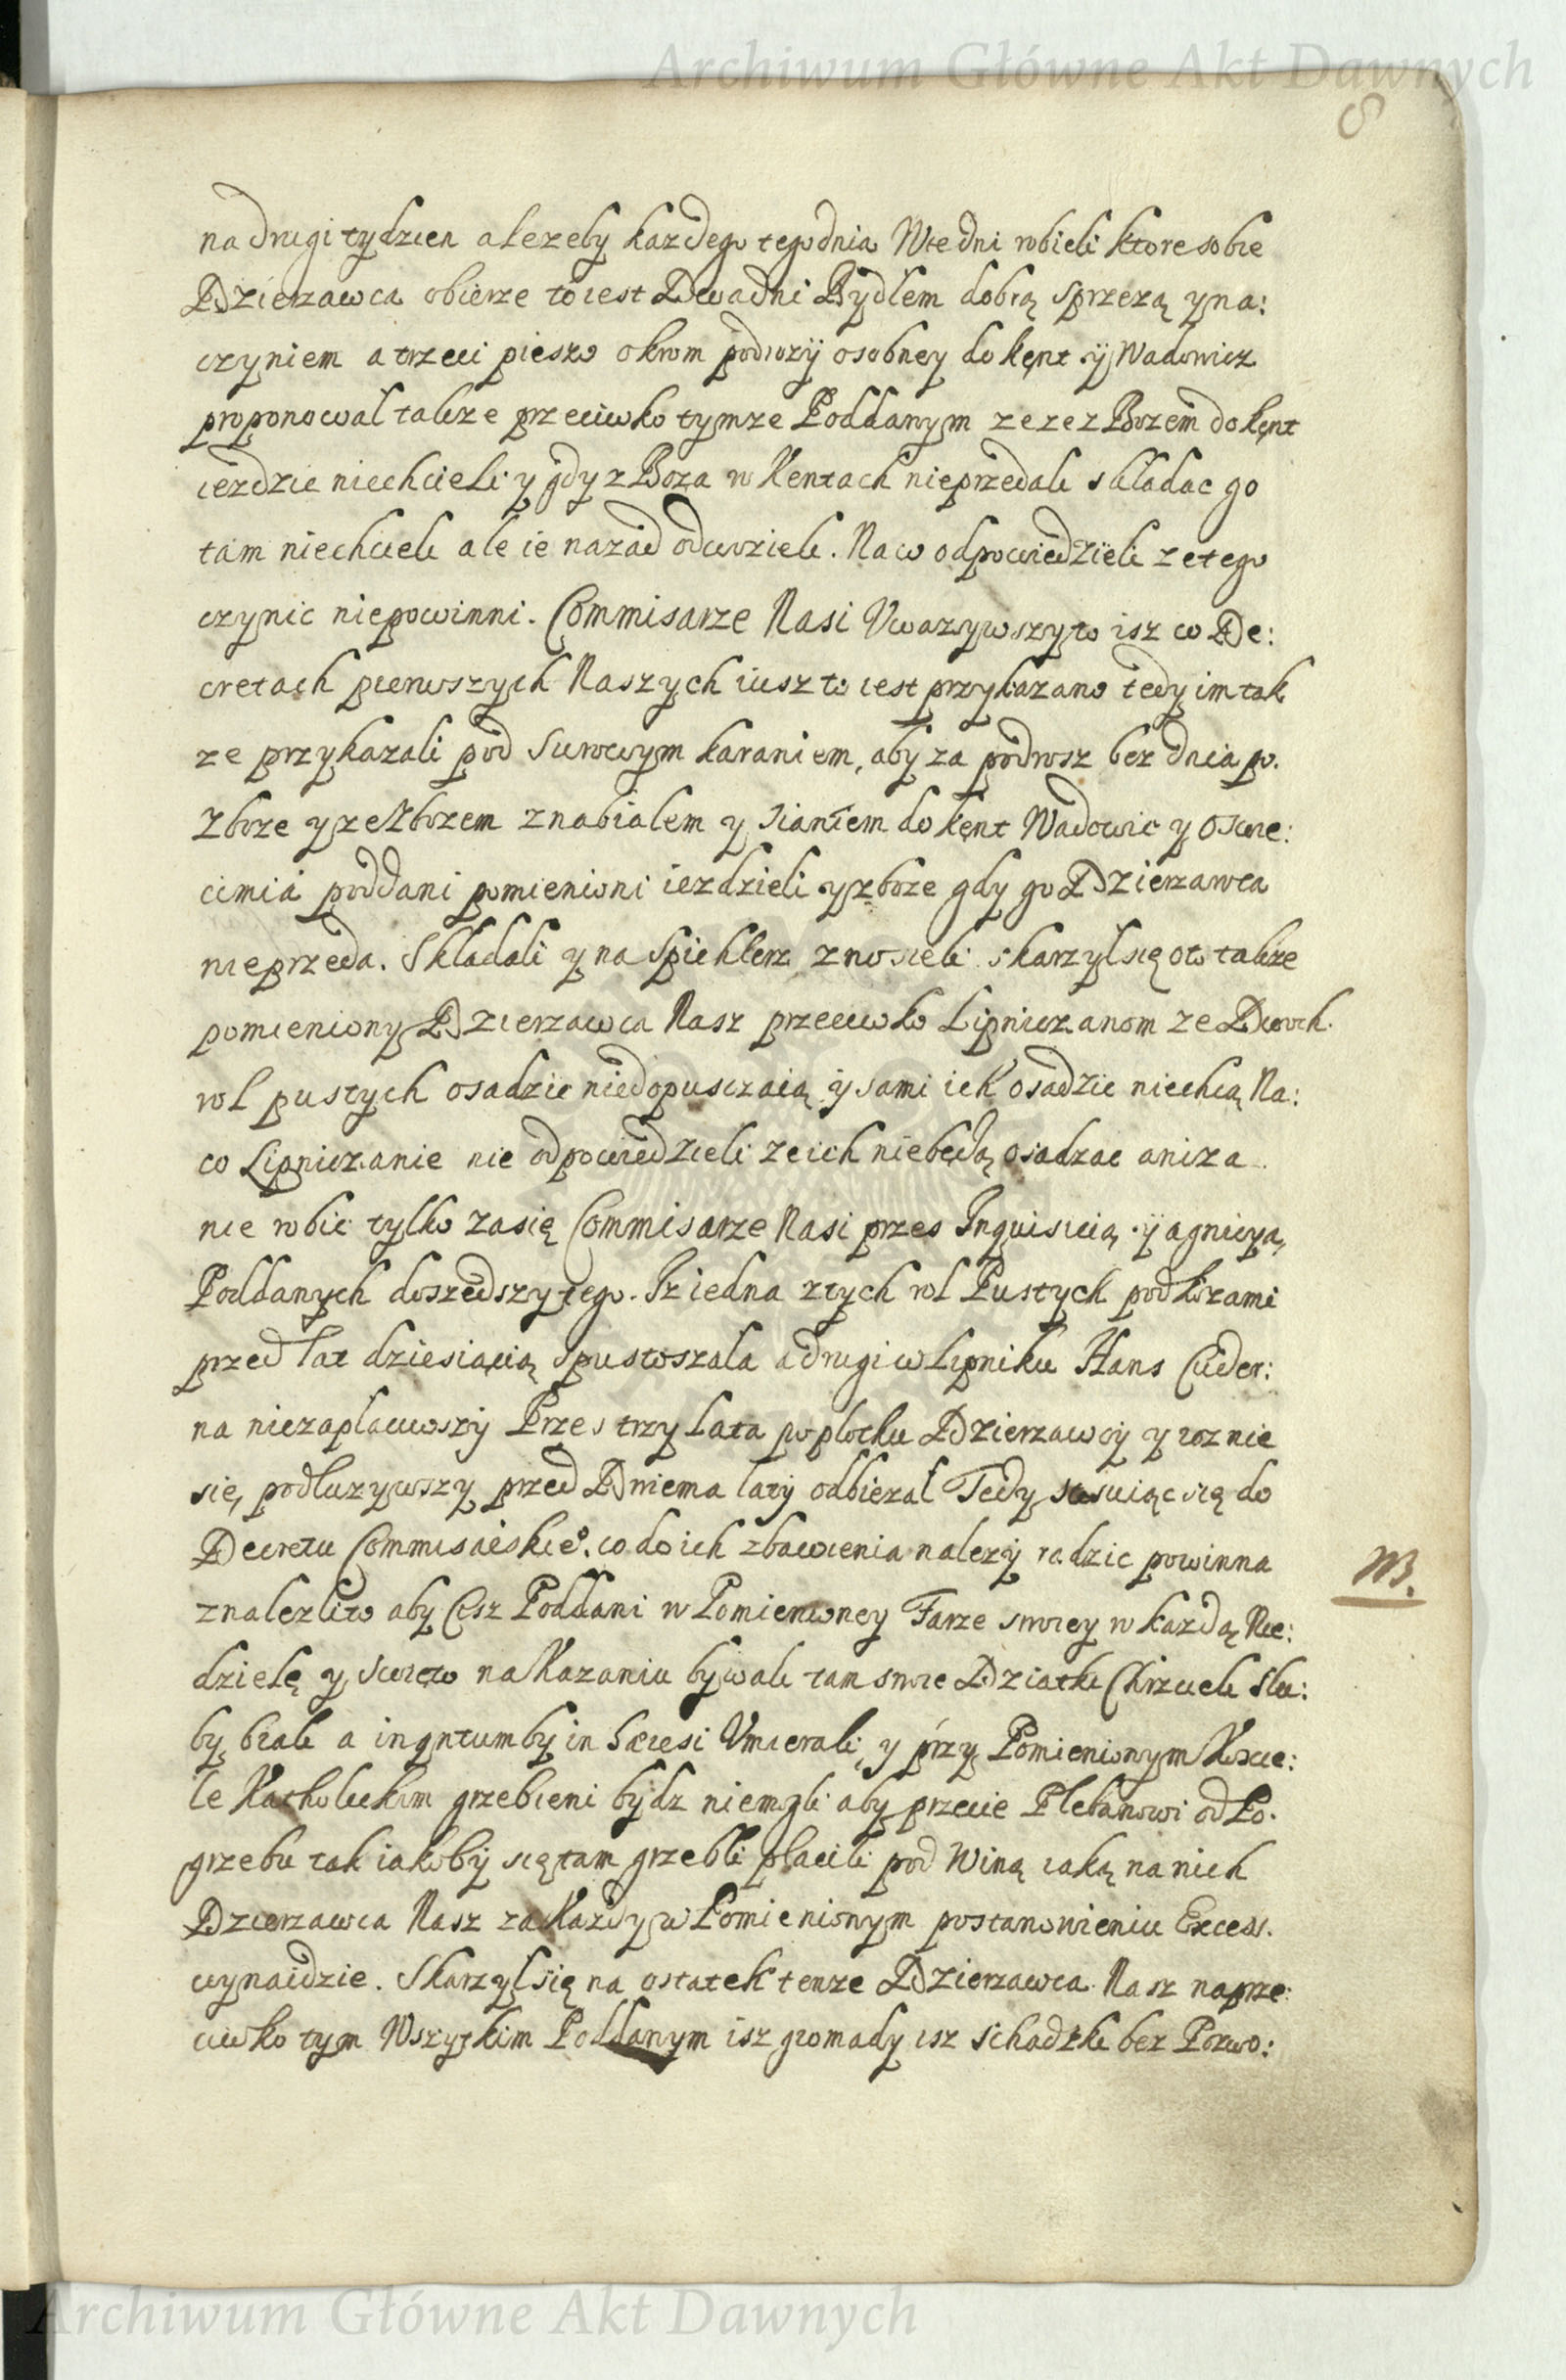 Archiwum Główne Akt Dawnych
8
na drugi tydzien ale zeby kazdego tegodnia Wte dni robieli ktore sobie
Dzierzawca obierze to iest Dwa dni Bydlem dobrą sprzezą y na:
czyniem a trzeci pieszo okrom podrozÿ osobney do kęnt ÿ Wadowicz
proponowal takze przeciwko tymze Poddanym ze zez Bozem do kęnt
iezdzic niechcieli y gdy z Boza w Kentach nieprzedali skladac go
tam niechcieli ale ie nazad odwozieli. Naco odpowiedzieli ze tego
czynic niepowinni. Commisarze Nasi Vwazywszy to isz w De:
cretach pierwszych Naszych iusz to iest przykazano tedy im tak
ze przykazali pod surowym karaniem, aby za podrosz bez dnia po.
Zboze y ze Zbozem z nabialem y sianiem do kęnt Wadowic y Oswie:
cimia poddani pomienioni iezdzieli y zboze gdy go Dzierzawca
nieprzeda. Skladali y na Spichlerz znosieli skarzyl się oto takze
pomieniony Dzierzawca Nasz przeciwko Lipniczanom ze Dwoch.
rol pustych osadzic niedopusczaią ÿ sami ich osadzic niechcą Na:
co Lipniczanie nie odpowiedzieli ze ich niebędą osadzac ani za
nie robic tylko zasię Commisarze Nasi przes Inquisicią ÿ agnicyą
Poddanych doszedszy tego. Iz iedna z tych rol Pustych pod kozami
przed lat dziesiącią spustoszala a drugi w Lipniku Hans Cuder:
na niezaplaciwszÿ Przes trzy lata po plocku Dzierzawcÿ y roznie
się podluzywszy przed Dwiema latÿ odbiezal Tedy stosuiąc się do
Decretu Commisarskieo. co do ich zbawienia nalezÿ radzic powinna
znalezli to aby Cisz Poddani w Pomienioney Farze swoiey w kazdą Nie:
dzielę y Swięto na Kazaniu bywali tam swoie Dziatki Chrzcieli slu:
by brali a inqntum by in hæresi Vmierali y przy Pomienionym Koscie:
le Katholickim grzebieni bydz niemogli aby przecie Plebanowi od Po.
grzebu tak iakobÿ się tam grzebli placili pod Winą iaką na nich
Dzierzawca Nasz za Kazdy w Pomienionym postanowieniu Excess.
wynaidzie. Skarzyl się na ostatek tenze Dzierzawca Nasz naprze:
ciwko tym Wszytkim Poddanym isz gromady isz schadzki bez Pozwo:
NB.
Archiwum Główne Akt Dawnych